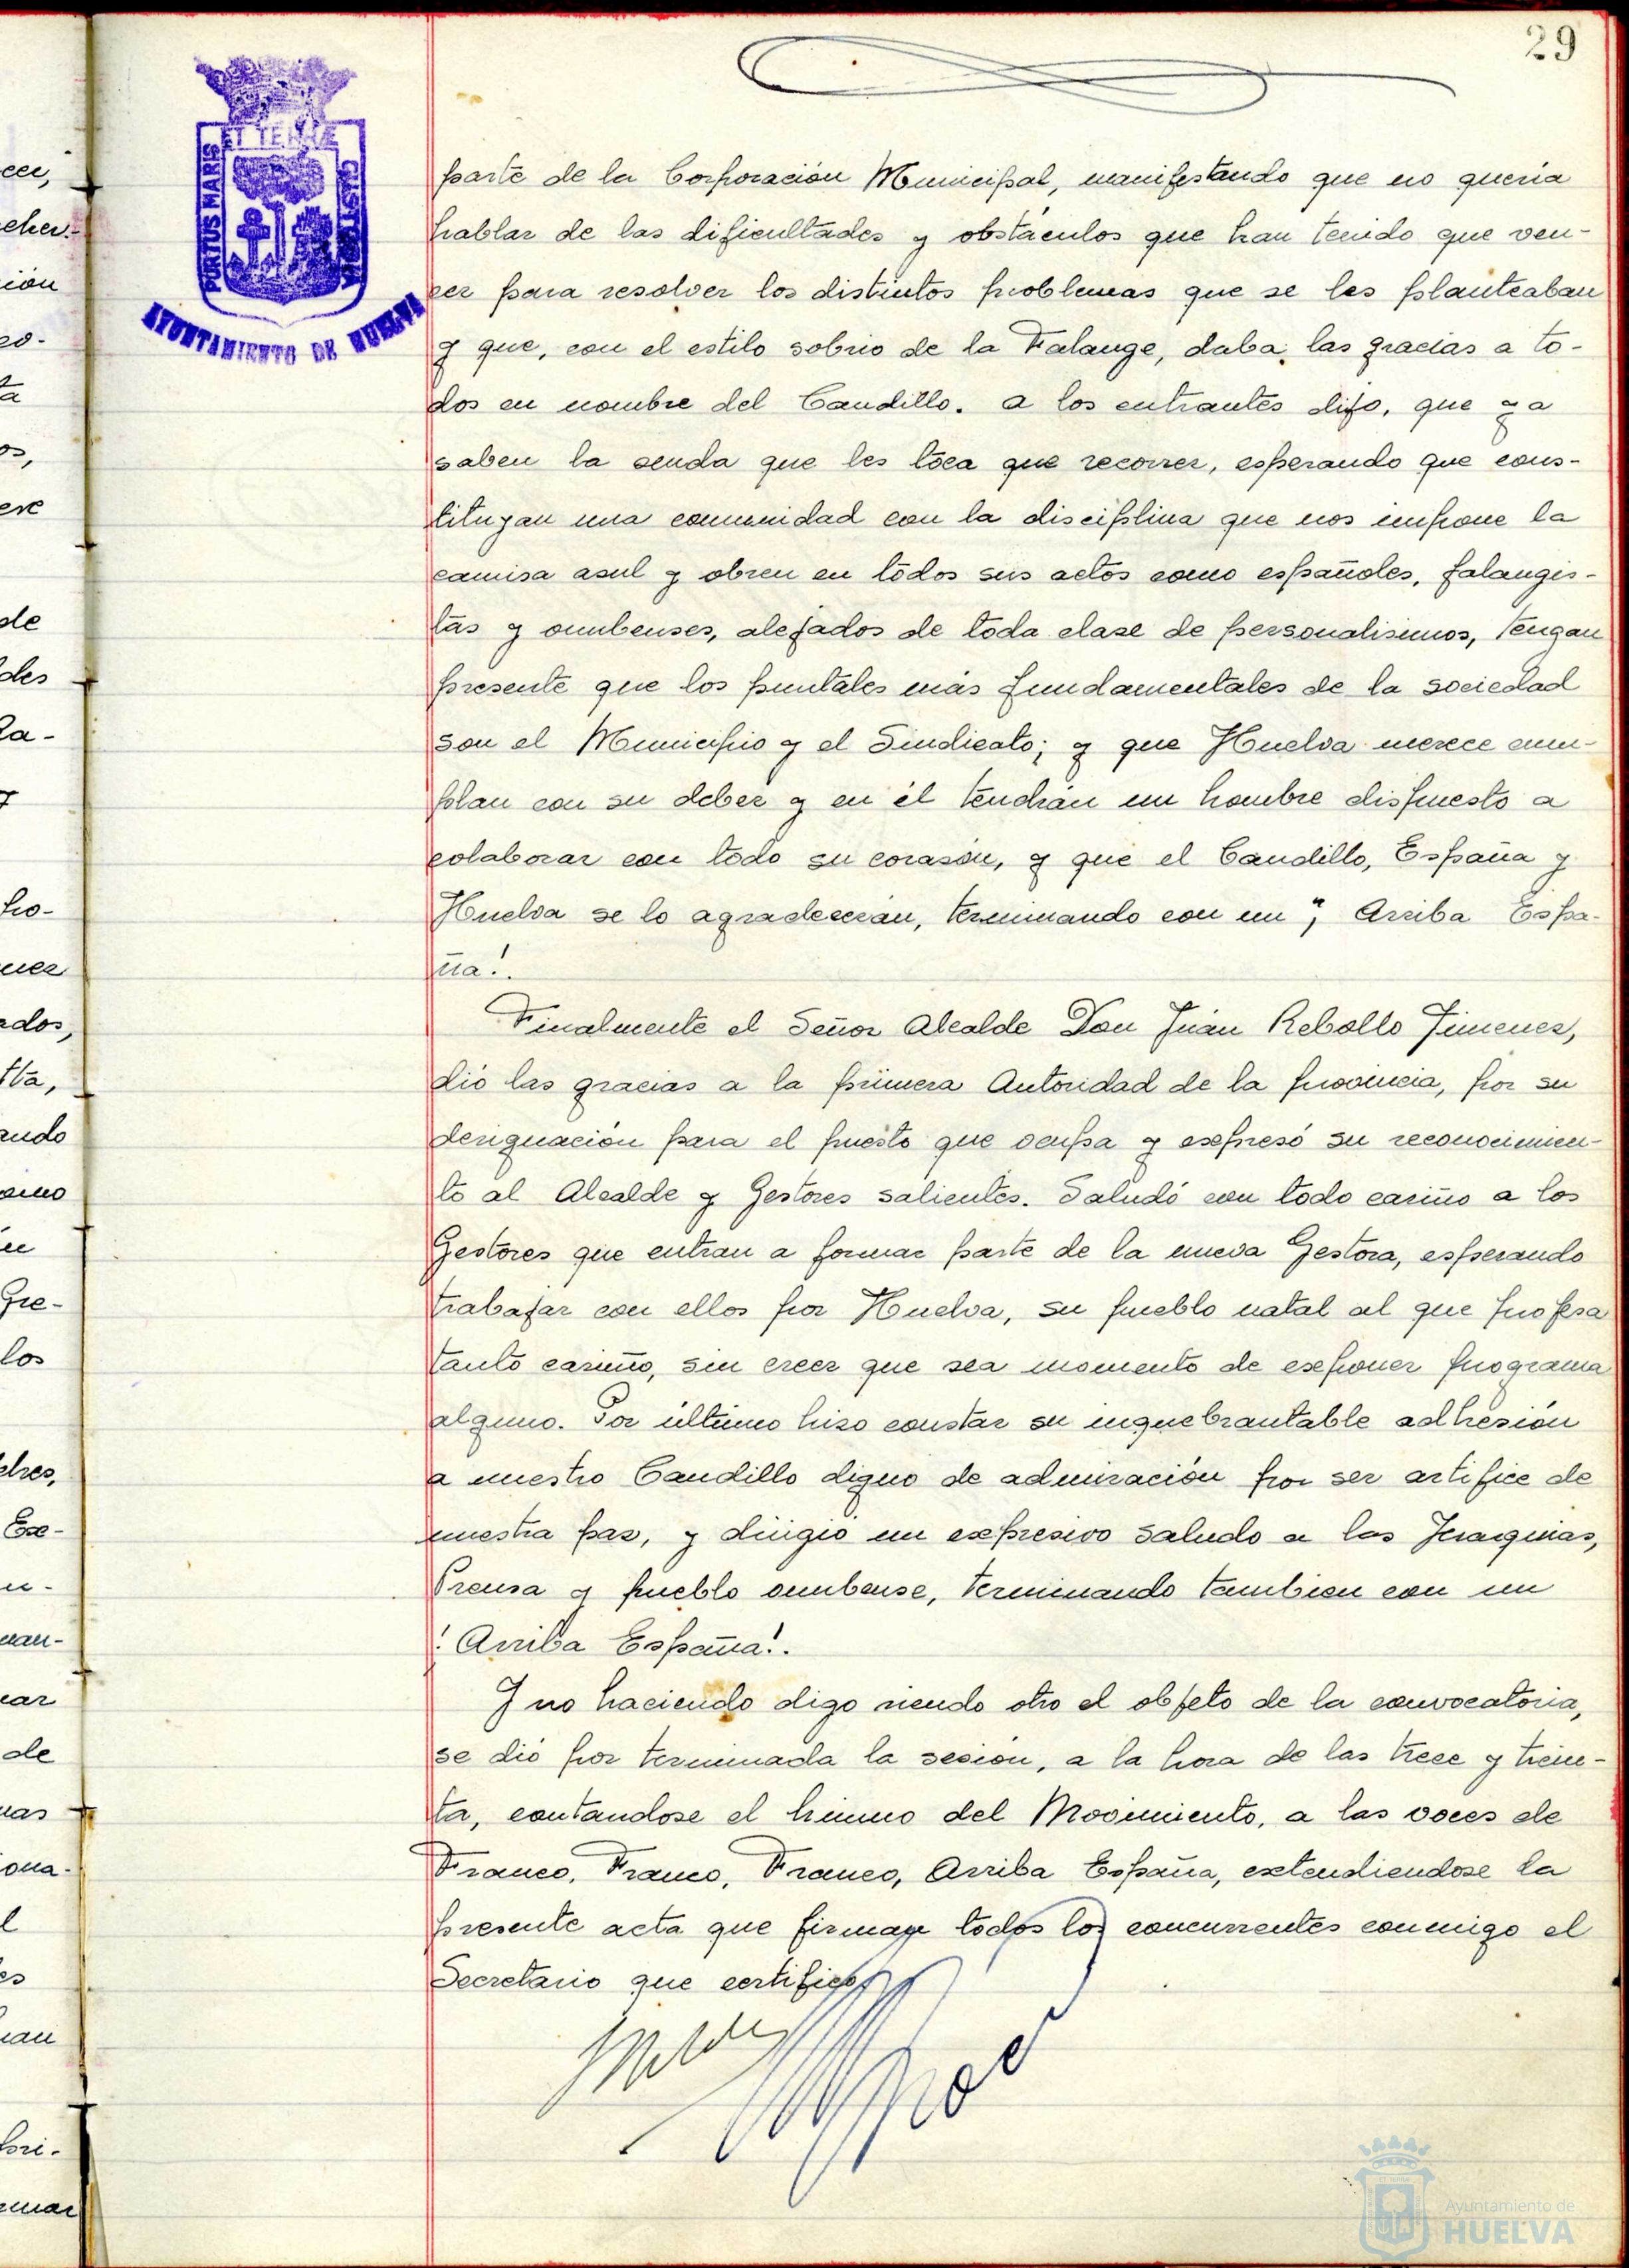 29
PORTUS MARIS ET TERRÆ CUSTODIA
AYUNTAMIENTO DE HUELVA
parte de la Corporación Municipal, manifestando que no quería
hablar de las dificultades y obstáculos que han tenido que ven-
cer para resolver los distintos problemas que se les planteaban
y que, con el estilo sobrio de la Falange, daba las gracias a to-
dos en nombre del Caudillo. a los entrantes dijo, que ya
saben la senda que les toca que recorrer, esperando que cons-
tituyan una comunidad con la disciplina que nos impone la
camisa asul y obren en todos sus actos como españoles, falangis-
tas y onubenses, alejados de toda clase de personalismos, tengan
presente que los puntales más fundamentales de la sociedad
son el Municipio y el Sindicato; y que Huelva merece cum-
plan con su deber y en él tendrán un hombre dispuesto a
colaborar con todo su corasón, y que el Caudillo, España y
Huelva se lo agradecerán, terminando con un "¡ Arriba Espa-
ña!.
Finalmente el Señor Alcalde Don Juán Rebollo Jimenez,
dió las gracias a la primera Autoridad de la provincia, por su
designación para el puesto que ocupa y expresó su reconocimien-
to al Alcalde y Gestores salientes. Saludó con todo cariño a los
Gestores que entran a formar parte de la nueva Gestora, esperando
trabajar con ellos por Huelva, su pueblo natal al que profesa
tanto cariño, sin creer que sea momento de exponer programa
alguno. Por último hizo constar su inquebrantable adhesión
a nuestro Caudillo digno de admiración por ser artifice de
nuestra paz, y dirigió un expresivo saludo a las Jerarquias,
Prensa y pueblo onubense, terminando tambien con un
! Arriba España!.
Y no haciendo digo siendo otro el objeto de la convocatoria,
se dió por terminada la sesión, a la hora de las trece y trein-
ta, cantandose el himno del Movimiento, a las voces de
Franco, Franco, Franco, Arriba España, extendiendose la
presente acta que firman todos los concurrentes conmigo el
Secretario que certifico
Ayuntamiento de
HUELVA